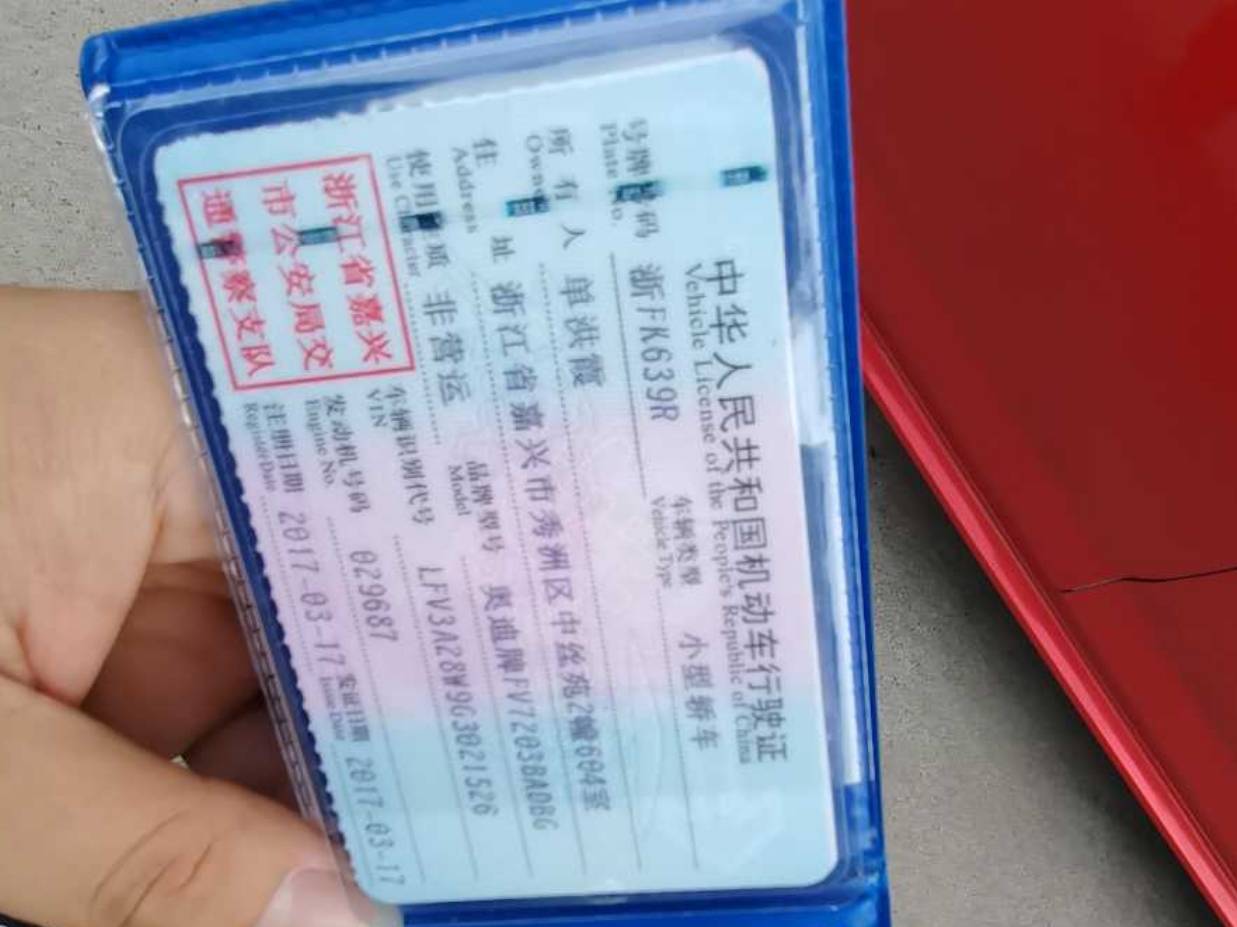 中华人民共和国机动车行驶证
Vehicle License of the People's Republic of China
号牌号码 浙FK639R 车辆类型 小型轿车
Plate No. Vehicle Type
所有人 单洪霞
Owner
住址 浙江省嘉兴市秀洲区中丝苑2幢604室
Address
使用性质 非营运 品牌型号 奥迪牌FV7203BADBG
Use Character Model
浙江省嘉兴
市公安局交
通警察支队
车辆识别代号 LFV3A28W9G3021526
VIN
发动机号码 029687
Engine No.
注册日期 2017-03-17 发证日期 2017-03-17
Register Date Issue Date